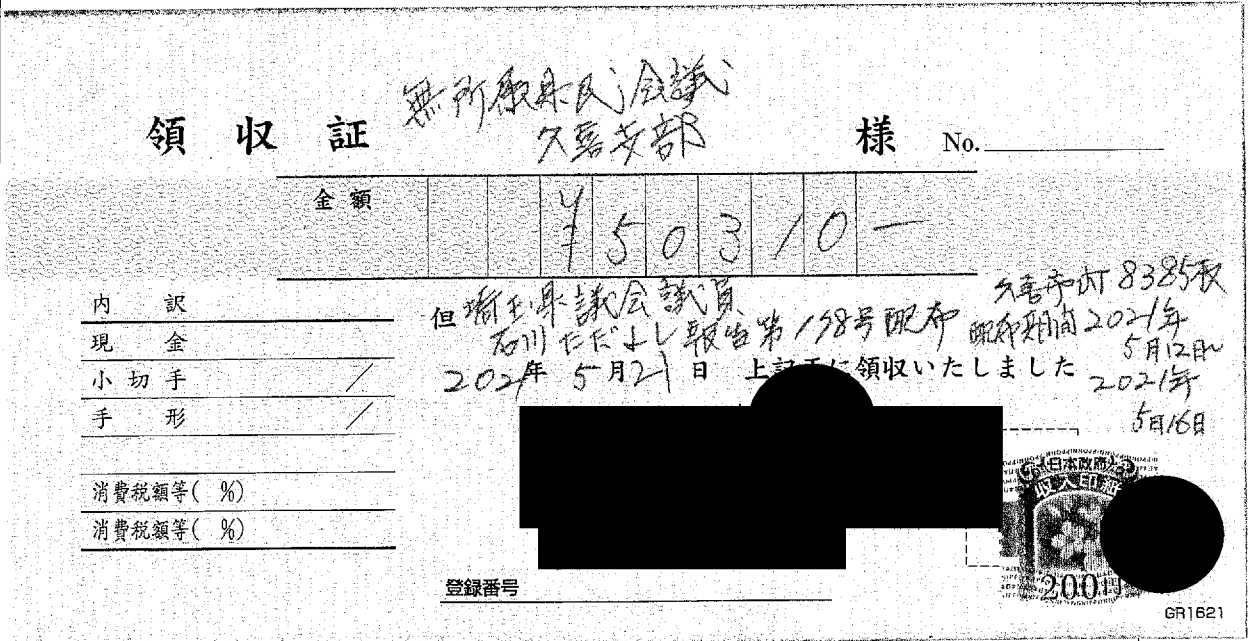 無所属県民会議
久喜支部
領収証 様 No.
金額 ¥50310-
内訳
現金
小切手
手形
消費税額等( %)
消費税額等( %)
但 埼玉県議会議員
石川ただよし報告第198号配布
久喜市内8385枚
配布期間2021年
5月12日~
2021年
5月16日
2021年 5月21日 上記正に領収いたしました
日本政府
収入印紙
200円
登録番号
GR1621